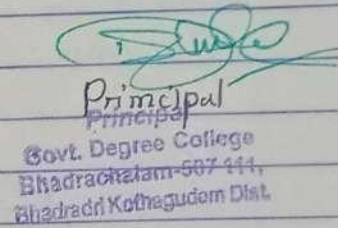 Principal
Principal
Govt. Degree College
Bhadrachalam-507 111,
Bhadradri Kothagudem Dist.